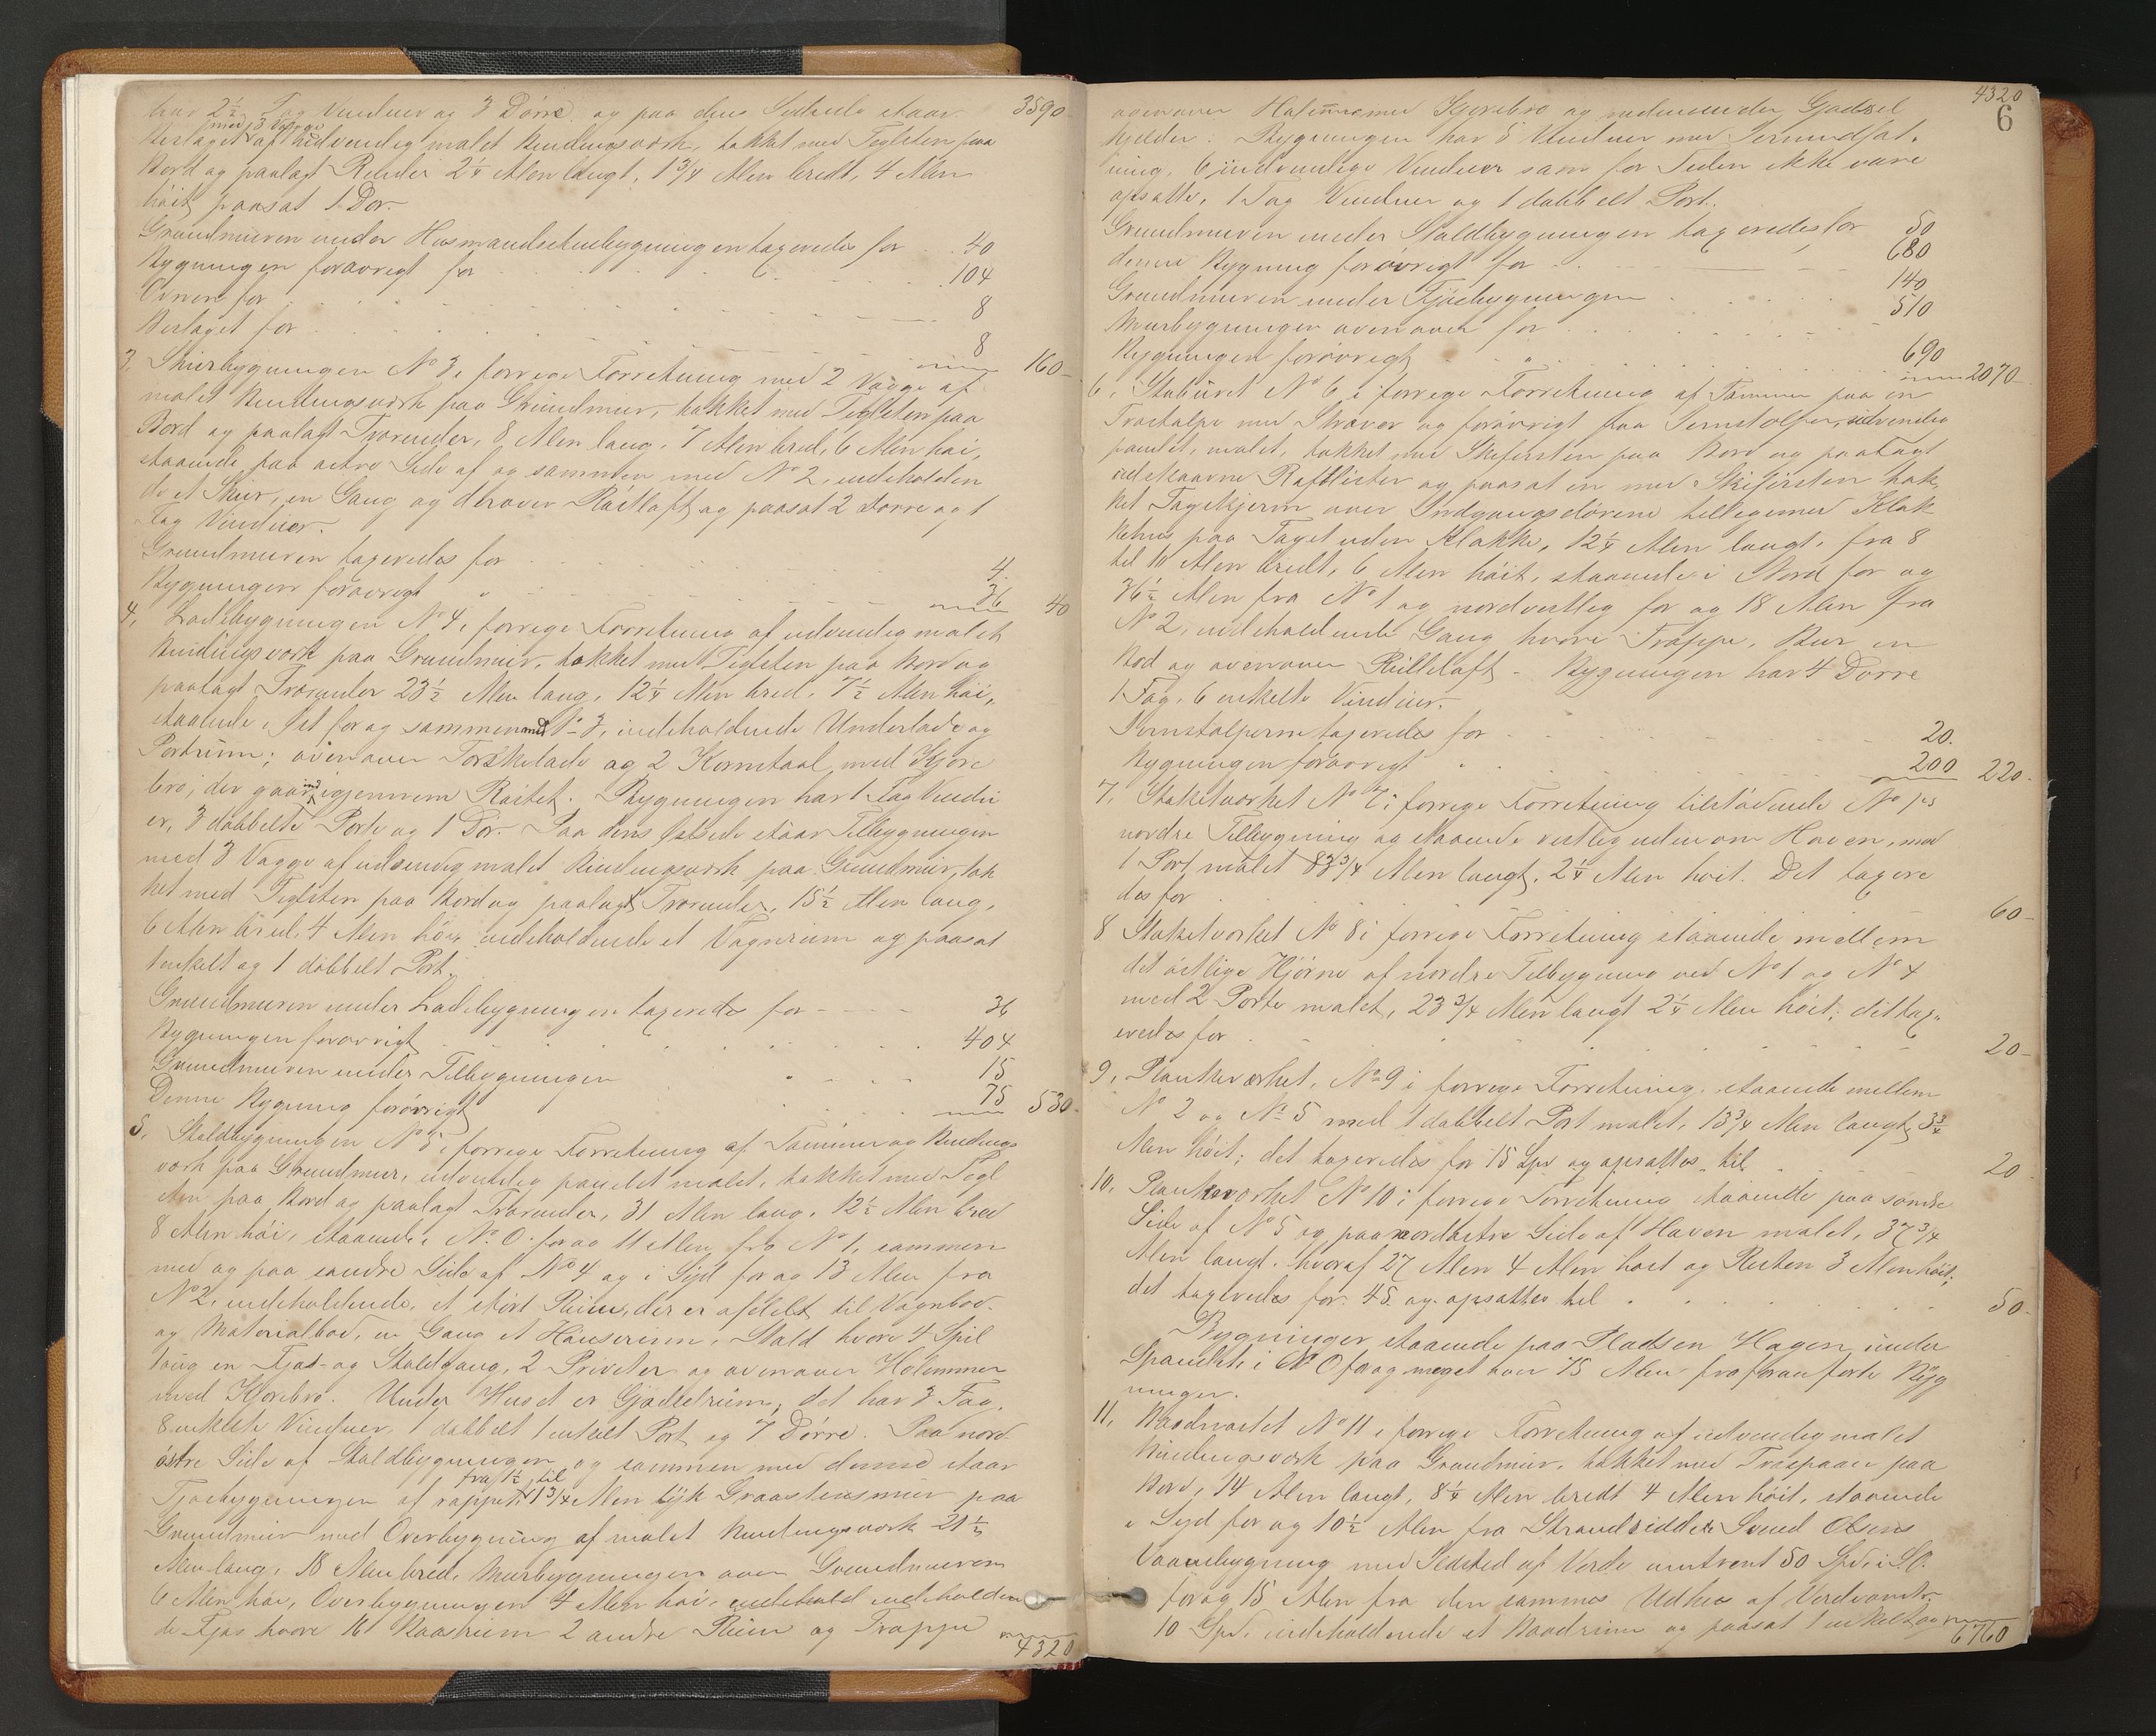 har 2½ Fag Vinduer og 3 Dörre, og paa dens Sydende staar 3590
med 3 Vægge
Beslaget af udvendig malet Bindingsværk, takket med Teglsten paa
Bord og paalagt Render 2¼ Alen langt, 1¾ Alen bredt, 4 Alen
höit, paasat 1 Dör.
Grundmuren under Husmandsstuebygningen taxeredes for 40
Bygningen forövrigt for 104
Ovnen for 8
Beslaget for 8 160
3, Skurbygningen No 3 i forrige Forretning med 2 Vægge af
malet Bindingsværk paa Grundmur, takket med Teglsten paa
Bord og paalagt Trærender, 8 Alen lang, 7 Alen bred, 6 Alen höi,
staaende paa östre Side af og sammen med No 2, indeholden
de et Skur, en Gang og derover Röstloft og paasat 2 Dörre og 1
Fag Vinduer.
Grundmuren taxeredes for 4
Bygningen forövrigt " 36 40
4, Ladebygningen No 4 i forrige Forretning af udvendig malet
Bindingsværk paa Grundmur, takket med Teglsten paa Bord og
paalagt Trærender 23½ Alen lang, 12¼ Alen bred, 7½ Alen höi,
staaende i Öst for og sammen med No 3, indeholdende Underlade og
Portrum; ovenover Törskelade og 2 Kornstaal med Kjöre
bro, der gaar ind igjennem Röstet. Bygningen har 1 Fag Vindu
er, 3 dobbelte Porte og 1 Dör. Paa dens Östside staar Tilbygningen
med 3 Vægge af udvendig malet Bindingsværk paa Grundmur, tak
ket med Teglsten paa Bord og paalagt Trærender, 15½ Alen lang,
6 Alen bred, 4 Alen höi, indeholdende et Vognrum og paasat
1 enkelt og 1 dobbelt Port.
Grundmuren under Ladebygningen taxeredes for 36
Bygningen forövrigt 404
Grundmuren under Tilbygningen 15
Denne Bygning forövrigt 75 530
5, Staldbygningen No 5 i forrige Forretning af Tömmer og Bindings
værk paa Grundmur, udvendig panelet malet, takket med Tegl
sten paa Bord og paalagt Trærender, 31 Alen lang, 12½ Alen bred
8 Alen höi, staaende i N. O. for og 11 Alen fra No 1, sammen
med og paa söndre Side af No 4 og i Syd for og 13 Alen fra
No 2, indeholdende, et stört Rum, der er afdelt til Vognbod
og Materialbod, en Gang et Hönserum, Stald hvori 4 Spil
toug en Fjös- og Staldgang, 2 Priveter og ovenover Hölemmer
med Kjörebro. Under Huset er Gjödselrum, det har 3 Fag,
8 enkelte Vinduer, 1 dobbelt 1 enkelt Port og 7 Dörre. Paa nord
östre Side af Staldbygningen og sammen med denne staar
fra 1½ til
Fjösbygningen af rappet 1¾ Alen tyk Graastensmur paa
Grundmur med Overbygning af malet Bindingsværk 21½
Alen lang, 18 Alen bred, Murbygningen over Grundmuren
6 Alen höi, Overbygningen 4 Alen höi, indehold indeholden
de Fjös hvori 16 Baasrum 2 andre Rum og Trappe
4320
4320
6
ovenover Hölemmer med Kjörebro og nedenunder Gjödsel
kjelder. Bygningen har 8 Vinduer med Jernindfat
ning, 6 indvendige Vinduer som for Tiden ikke vare
opsatte, 1 Fag Vinduer og 1 dobbelt Port.
Grundmuren under Staldbygningen taxeredes for 50
denne Bygning forövrigt for 680
Grundmuren under Fjösbygningen 140
Murbygningen ovenover for 510
Bygningen forövrigt " 690 2070
6, Staburet No 6 i forrige Forretning af Tömmer paa en
Træstolpe med Straver og forövrigt paa Jernstolper, udvendig
panelet, malet, takket med Skifersten paa Bord og paalagt
udskaarne Raftlister og paasat en med Skifersten tak
ket Tagskjerm over Indgangsdörene tilligemed Klok
kehus paa Taget uden Klokke, 12¼ Alen langt, fra 8
til 10 Alen bredt, 6 Alen höit, staaende i Nord for og
36½ Alen fra No 1 og nordvestlig for og 18 Alen fra
No 2, indeholdende Gang hvori Trappe, Bur en
Bod og ovenover Rulleloft. Bygningen har 4 Dörre
1 Fag, 6 enkelte Vinduer.
Jernstolperne taxeredes for 20.
Bygningen forövrigt " 200 220
7, Staketværket No 7 i forrige Forretning tilstödende No 1s
nordre Tilbygning og staaende vestlig udenom Haven, med
1 Port, malet 83¾ Alen langt, 2¼ Alen höit. Det taxere
des for 60
8 Staketværket No 8 i forrige Forretning staaende mellem
det östlige Hjörne af nordre Tilbygning ved No 1 og No 4
med 2 Porte malet, 23¾ Alen langt 2¼ Alen höit; det tax
eredes for 20
9, Plankeværket, No 9 i forrige Forretning, staaende mellem
No 2 og No 5 med 1 dobbelt Port malet, 13¾ Alen langt, 3¾
Alen höit; det taxeredes for 15 Spd og opsattes til 20
10, Plankeværket No 10 i forrige Forretning staaende paa söndre
Side af No 5 og paa nordöstre Side af Haven malet, 37¾
Alen langt, hvoraf 27 Alen 4 Alen höit og Resten 3 Alen höit;
det taxeredes for 45 og opsattes til 50
Bygninger staaende paa Pladsen Hagen under
i N. O for og meget over 75 Alen fra foranförte Byg
ninger.
11, Baadnöstet No 11 i forrige Forretning af udvendig malet
Bindingsværk paa Grundmur, takket med Træspaan paa
Bord, 14 Alen langt, 8¼ Alen bredt 4 Alen höit, staaende
i Syd for og 10½ Alen fra Strandsidder Svend Olsens
Vaanebygning med Ildsted af Værdi omtrent 50 Spd, i S. O.
for og 15 Alen fra den sammes Udhus af Værdi omtr.
10 Spd. indeholdende et Baadrum og paasat 1 enkelt
6760